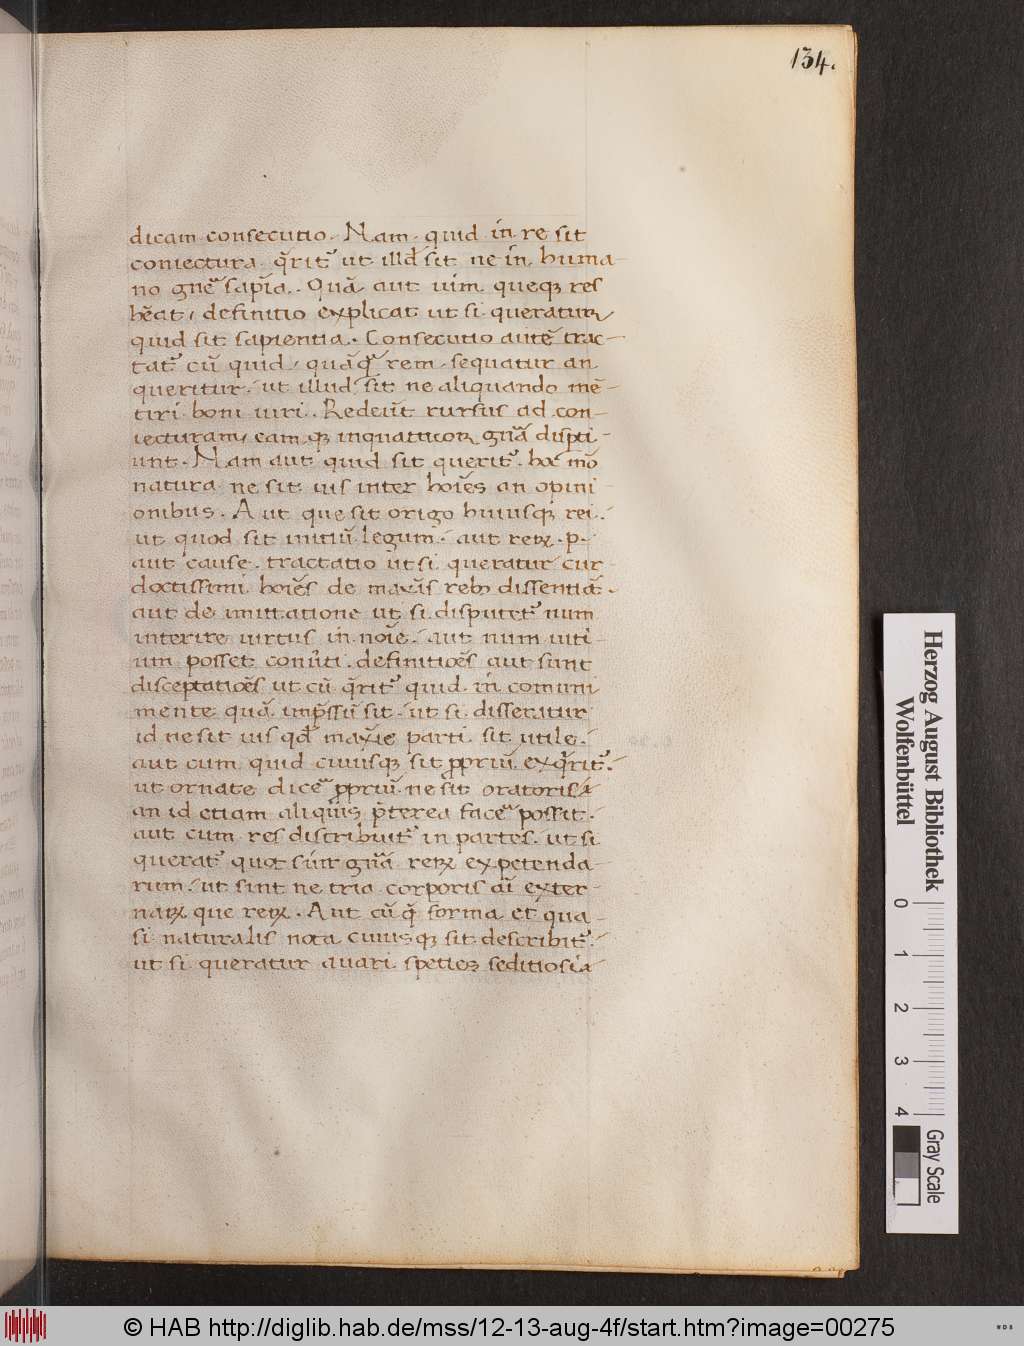 134.
dicam consecutio. Nam. quid in re sit
coniectura q̄rit᷑ ut illd̄ sit ne in huma-
no gn̄e sapīa. Quā aut uim queqȝ res
hēat, definitio explicat ut si queratur,
quid sit sapientia. Consecutio autē trac-
tat᷑ cū quid, quāq̄ rem. sequatur an
queritur. ut illud sit ne aliquando mē-
tiri boni uiri. Redeūt rursus ad con-
iecturam, eam qȝ in quattuor gn̄a disp̄ti-
unt. Nam aut quid sit querit᷑. hoc mō
natura ne sit uis inter hoīes an opini-
onibus. Aut que sit origo huiusqȝ rei.
ut quod sit initiū legum. aut reꝝ. p.
aut cause. tractatio ut si queratur cur
doctissimi hoīes de maxīs rebȝ dissentiāt.
aut de imutatione ut si disputet᷑ num
interire uirtus in hoīe. aut num uiti-
um posset conu̇ti. definitiōes aut sunt
disceptatiōes ut cū q̄rit᷑ quid. in comuni
mente quā imp̄ssū sit. ut si disseratur
id ne sit uis qd̄ maxīe parti sit utile.
aut cum quid cuiusqȝ sit ꝓpriū exq̄rit᷑.
ut ornate dicē ꝓpriū ne sit oratoris
an id etiam aliquis p̄terea facē possit.
aut cum res distribuit᷑ in partes. ut si
querat᷑ quot sint gn̄a reꝝ expetenda-
rum. ut sint ne tria corporis aī exter-
naꝝ que reꝝ. Aut cū q̄ forma et qua-
si naturalis nota cuiusqȝ sit describit᷑.
ut si queratur auari speties seditiosi
Herzog August Bibliothek
Wolfenbüttel
0 1 2 3 4
Gray Scale
© HAB http://diglib.hab.de/mss/12-13-aug-4f/start.htm?image=00275